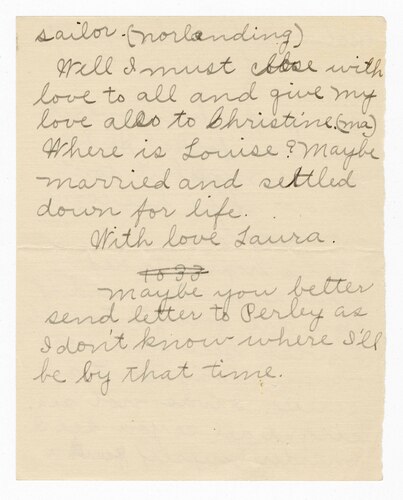 sailor. (norlanding)
Well I must close with
love to all and give my
love also to Christine. (ma)
Where is Louise? Maybe
married and settled
down for life.
With love Laura.
1033
Maybe you better
send letter to Perley as
I don't know where I'll
be by that time.